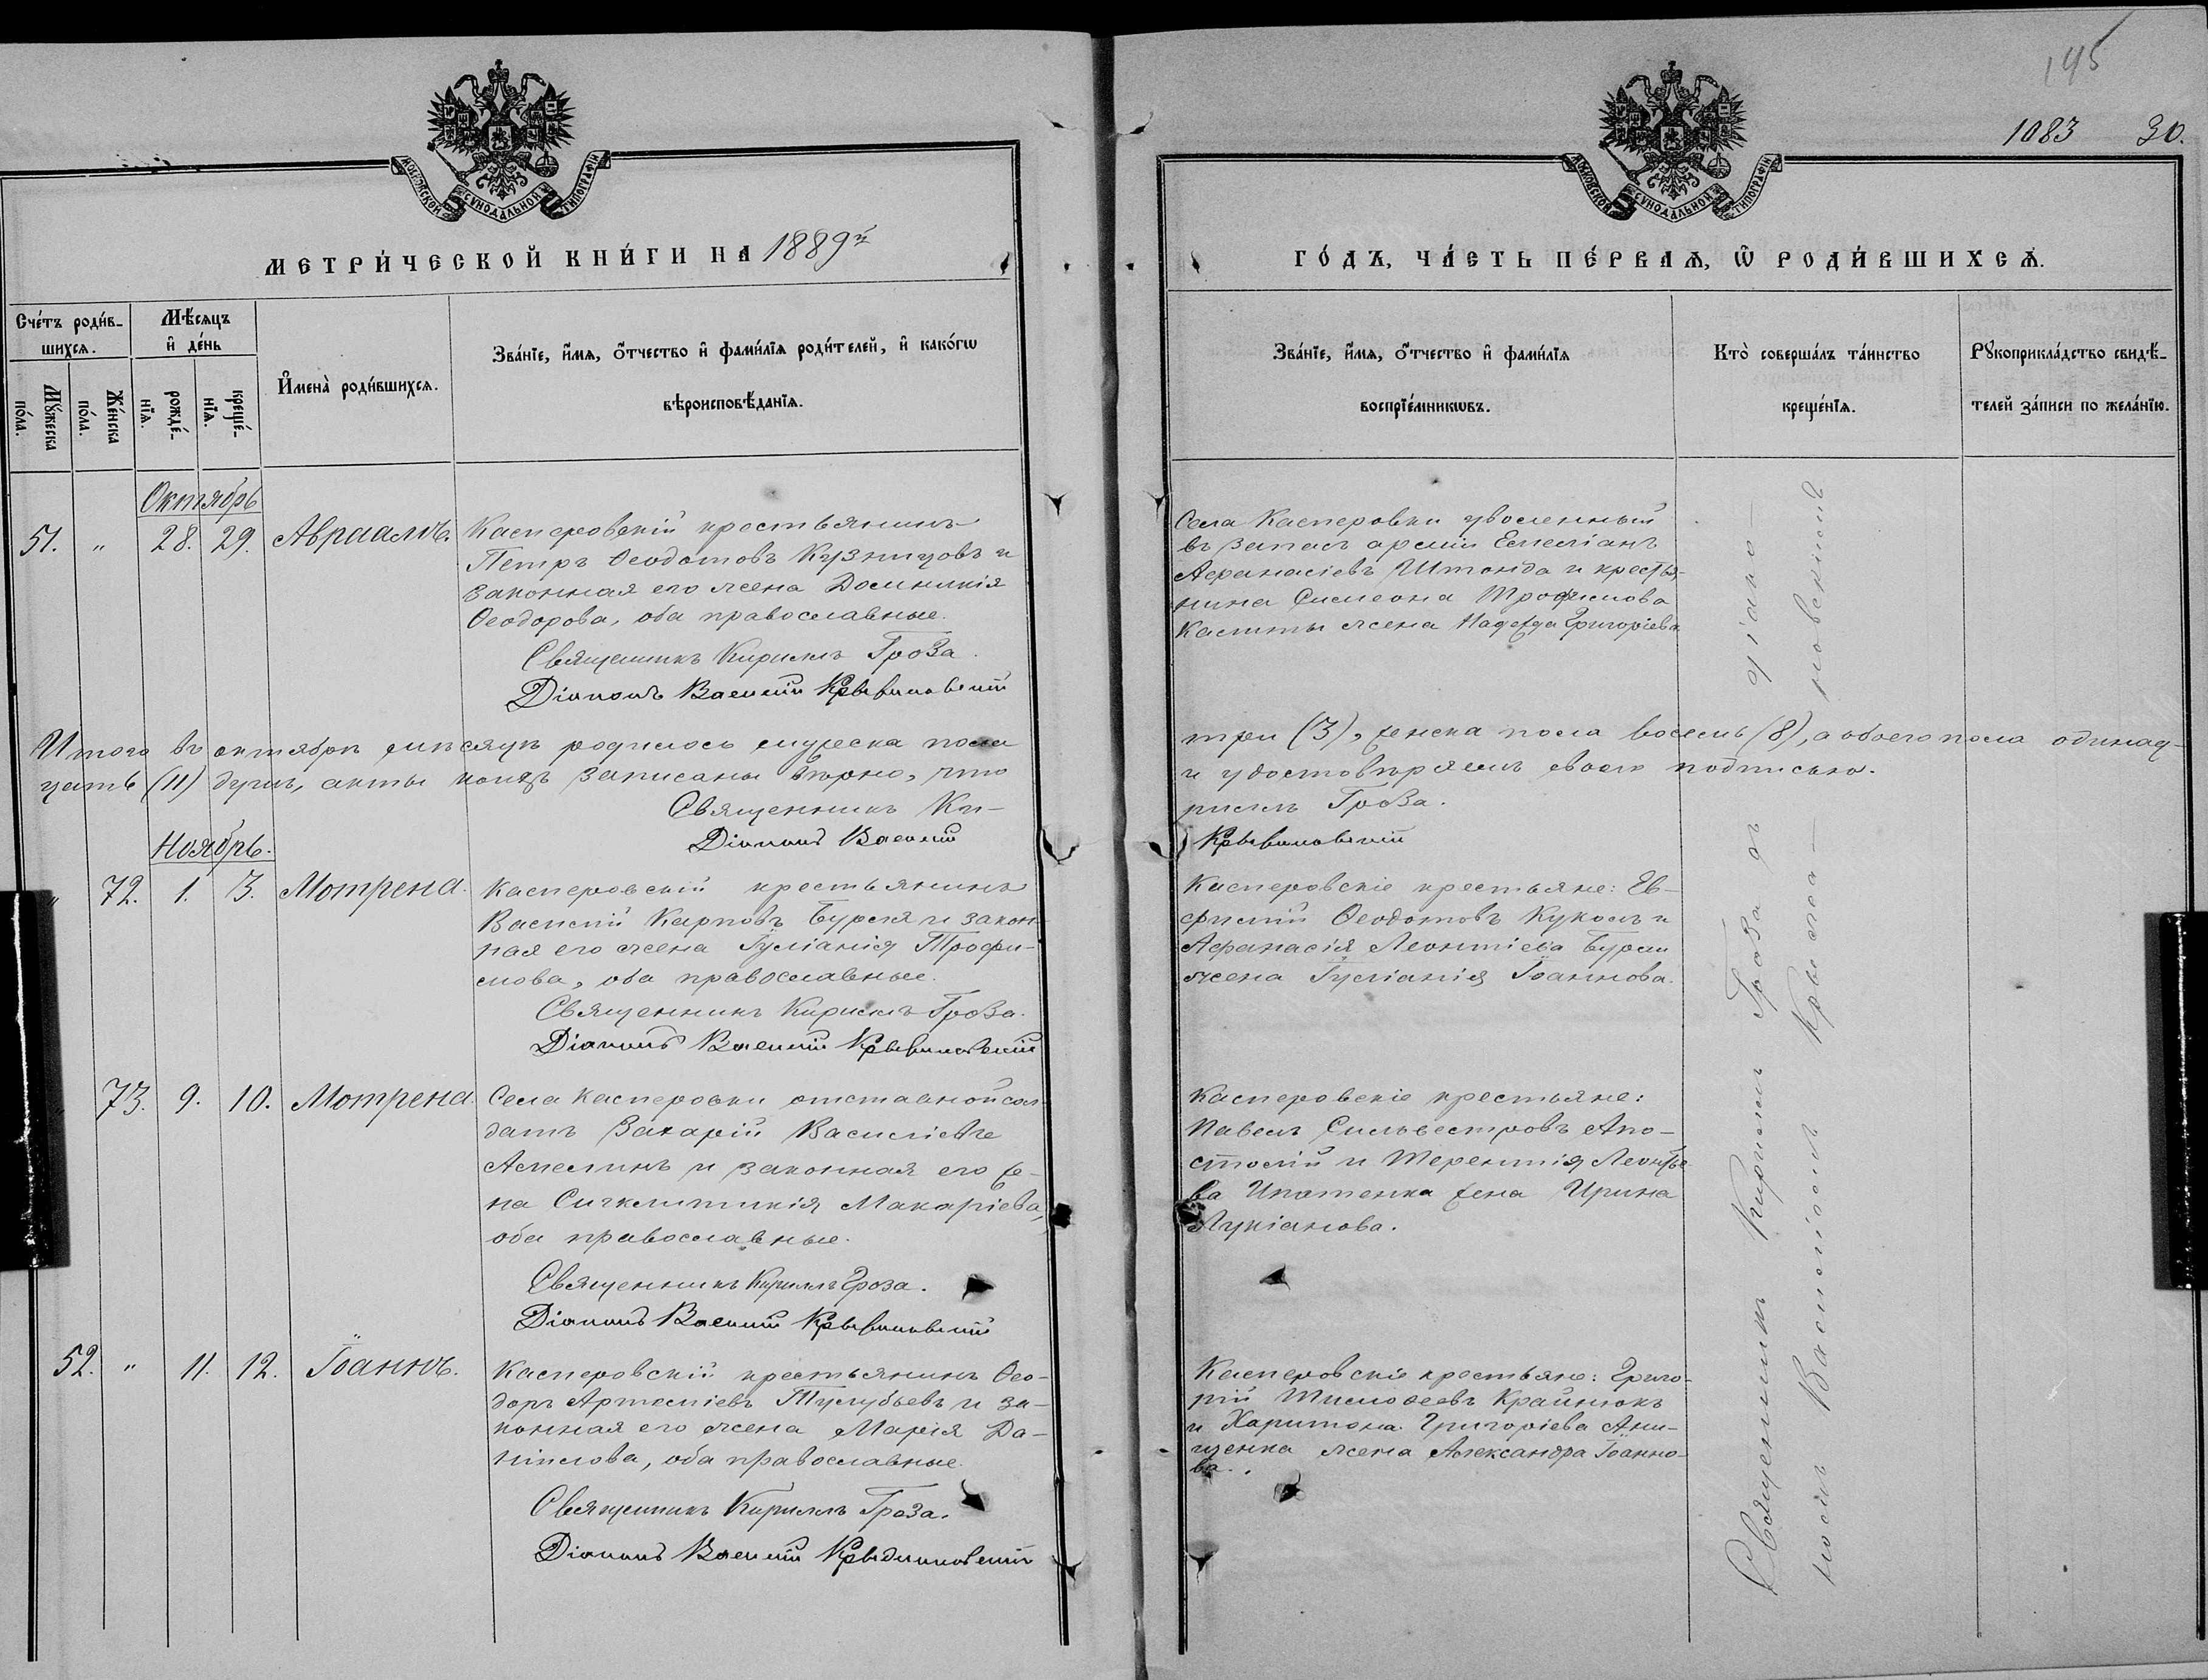 145
1083 30.
МОСКОВСКОЙ СѴНОДАЛЬНОЙ ТИПОГРАФІИ
МОСКОВСКОЙ СѴНОДАЛЬНОЙ ТИПОГРАФІИ
МЕТРИ́ЧЕСКОЙ КНИ́ГИ НА 1889й
ГО́ДЪ, ЧА́СТЬ ПЕ́РВАѦ, Ѡ҆ РОДИ́ВШИХСѦ.
Сче́тъ роди́в-
шихсѧ.
Мѣ́сѧцъ
и҆ де́нь
Мꙋ́жеска
по́ла.
Же́нска
по́ла.
рожде́-
нїѧ.
креще́-
нїѧ.
И҆мена̀ роди́вшихсѧ.
Зва́нїе, и҆́мѧ, ѻ҆́тчество и҆ фами́лїѧ роди́телей, и҆ како́гѡ
вѣроисповѣ́данїѧ.
Зва́нїе, и҆́мѧ, ѻ҆́тчество и҆ фами́лїѧ
воспрїе́мникѡвъ.
Кто̀ соверша́лъ та́инство
креще́нїѧ.
Рꙋкоприкла́дство свидѣ́-
телей за́писи по жела́нїю.
Октябрь
51. „ 28. 29. Авраамъ.
Касперовскій крестьянинъ
Петръ Ѳеодотовъ Кузнцовъ и
законная его жена Домникія
Ѳеодорова, оба православные.
Священникъ Кириллъ Гроза.
Діаконъ Василій
Села Касперовки уволенный
въ запасъ арміи Емеліанъ
Аѳанасіевъ Штонда и крестья-
нина Симеона Трофимова
жена Надежда Григоріева.
Итого въ октябрѣ мѣсяцѣ родилось мужеска пола
три (3), женска пола восемь (8), а обоего пола одинад-
цать (11) душъ, акты коихъ записаны вѣрно, что
и удостовѣряемъ своею подписью.
Священникъ Ки-
риллъ Гроза.
Діаконъ Василій
Ноябрь.
„ 72. 1. 3. Мотрена.
Касперовскій крестьянинъ
Василій Карповъ Бурся и закон-
ная его жена Іуліанія Трофи-
мова, оба православные.
Священникъ Кириллъ Гроза.
Діаконъ Василій
Касперовскіе крестьяне: Ев-
фимій Ѳеодотовъ Куколъ и
Аѳанасія Леонтіева Бурси
жена Іуліанія Іоаннова.
73. 9. 10. Мотрена.
Села Касперовки отставной сол-
датъ Захарій Василіевъ
Аспелинъ и законная его же-
на Сигклитикія Макаріева,
оба православные.
Священникъ Кириллъ Гроза.
Діаконъ Василій
Касперовскіе крестьяне:
Павелъ Сильвестровъ Апо-
столій и Терентія Леонтье-
ва Ипатенка жена Ирина
Лукіанова.
52. „ 11. 12. Іоаннъ.
Касперовскій крестьянинъ Ѳео-
доръ Артеміевъ Тулубьевъ и за-
конная его жена Марія Да-
ніилова, оба православные.
Священникъ Кириллъ Гроза.
Діаконъ Василій
Касперовскіе крестьяне: Григо-
рій Тимоѳеевъ Крайнюкъ
и Харитона Григоріева Они-
щенка жена Александра Іоанно-
ва.
Священникъ Кириллъ Гроза съ діако-
номъ Василіемъ